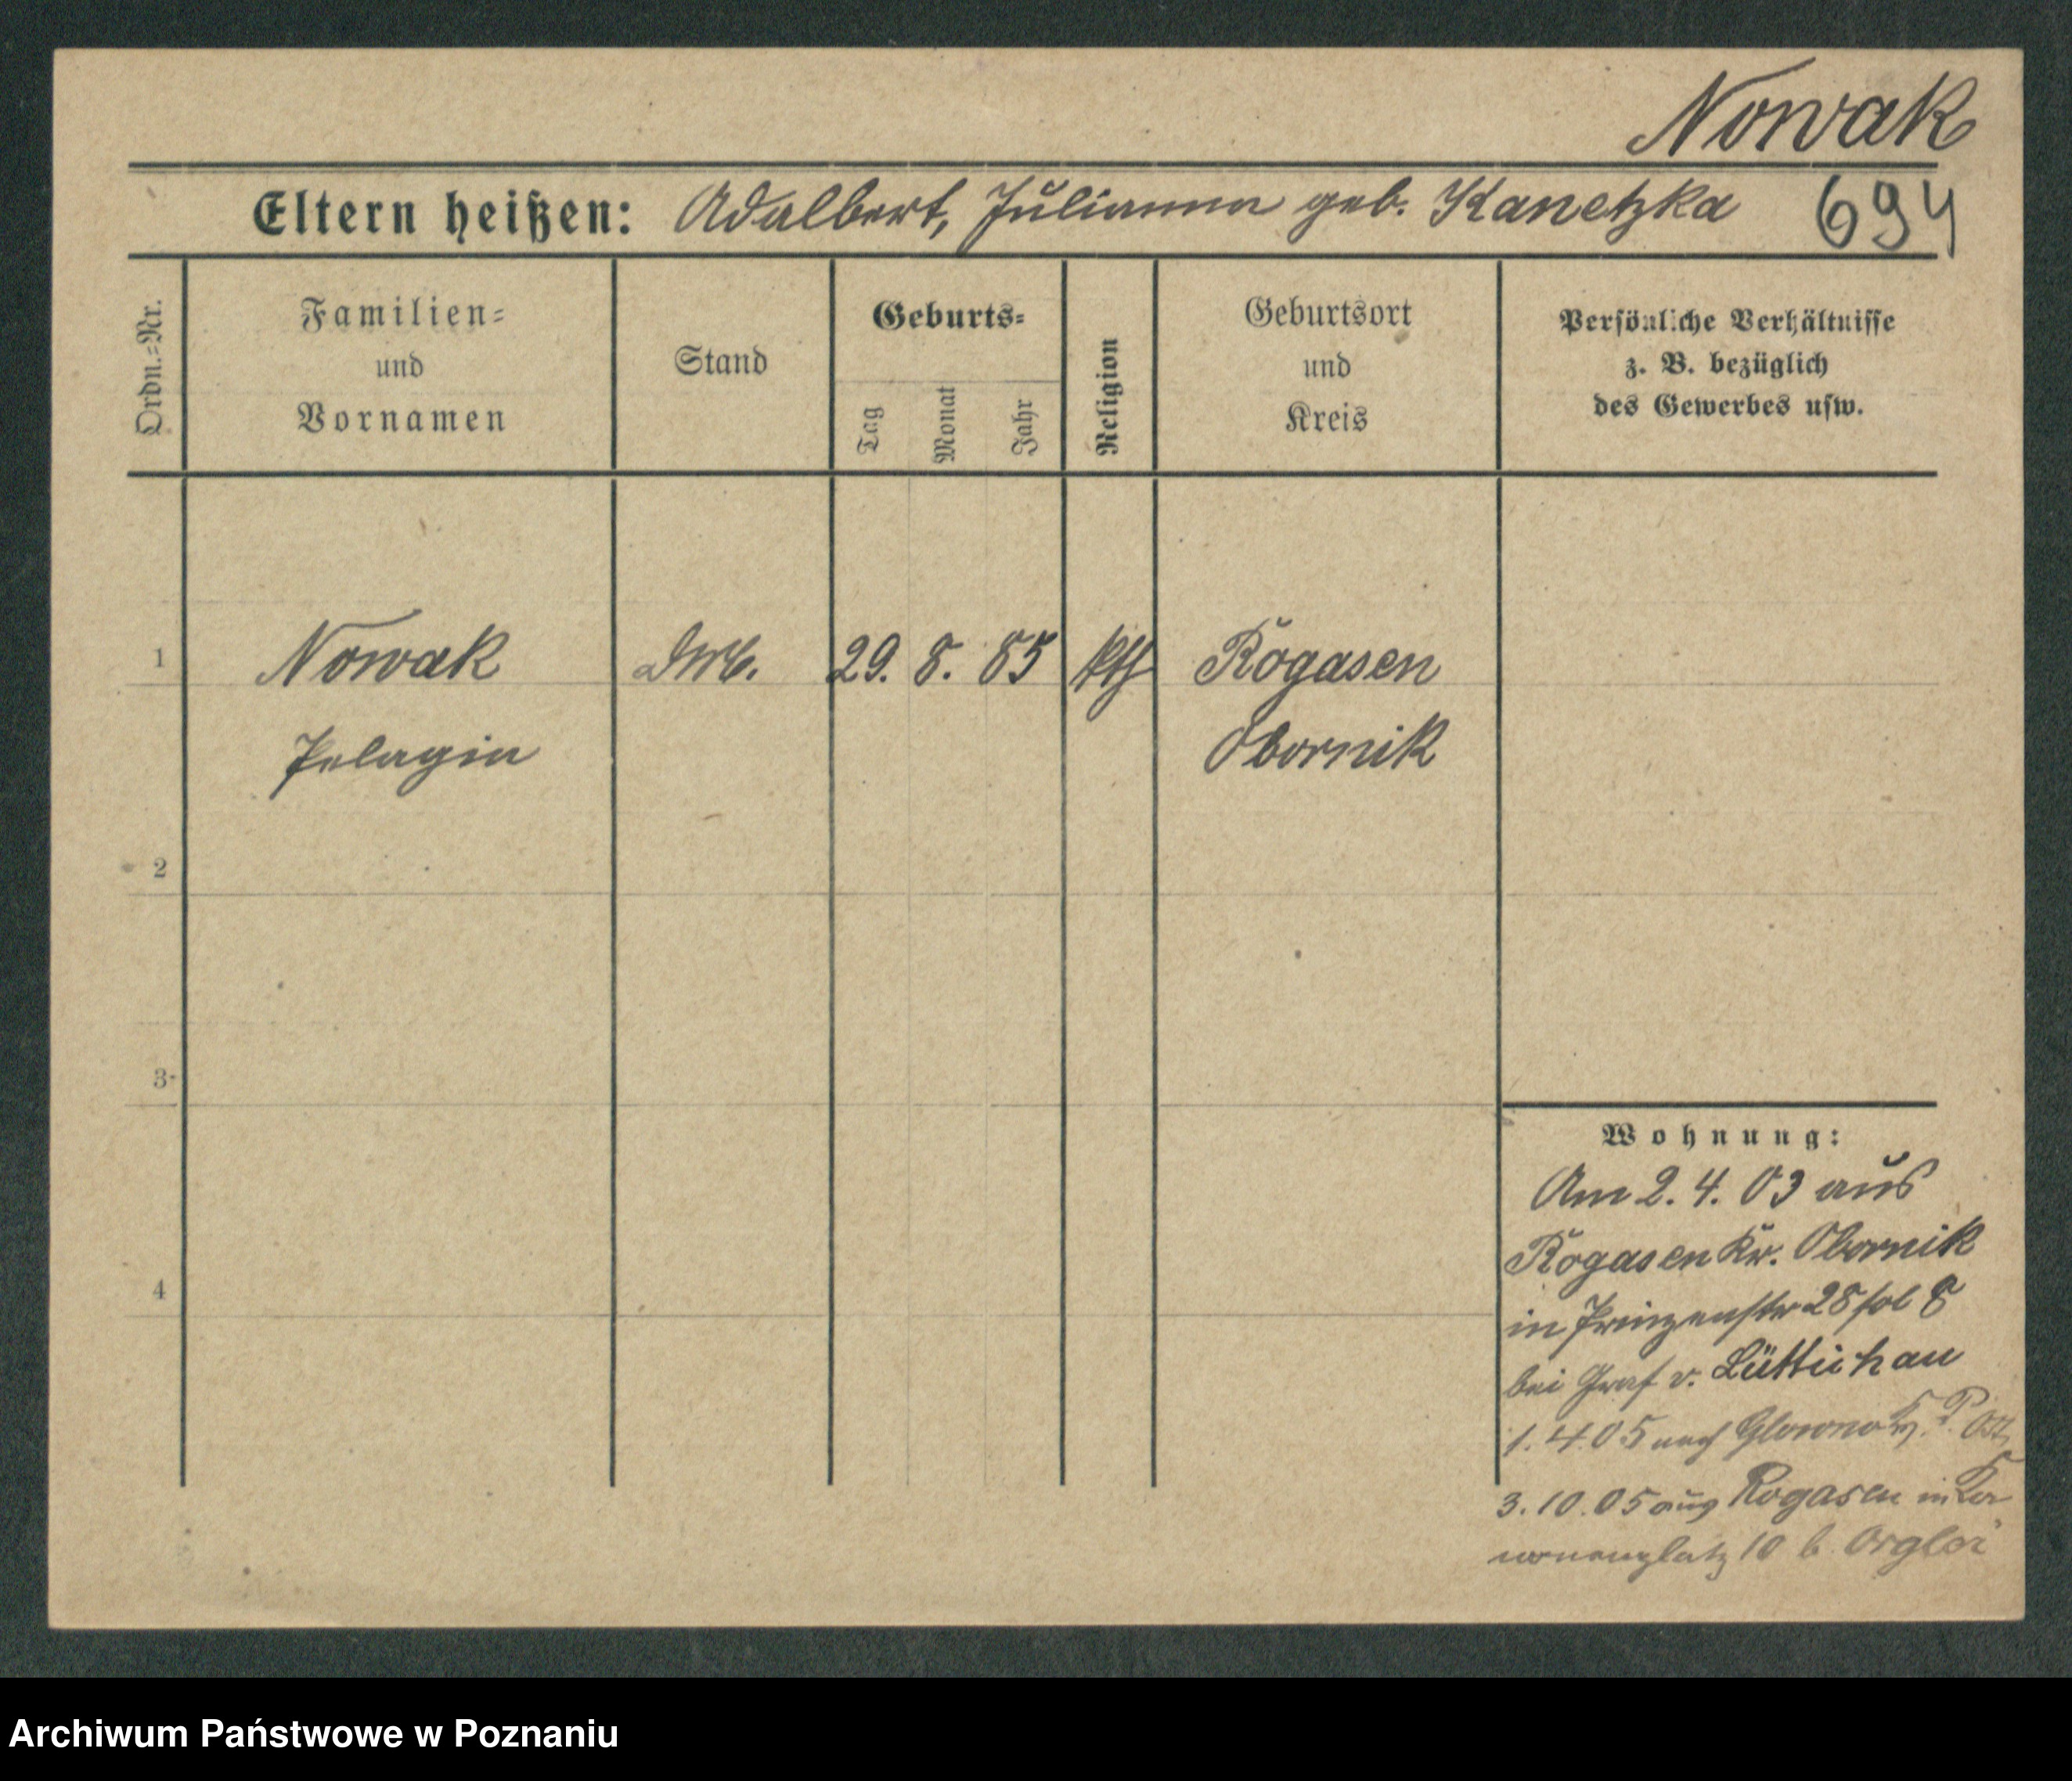 Nowak
Eltern heißen: Adalbert, Julianna geb. Kanetzka 694
Ordn.-Nr.
Familien-
und
Vornamen
Stand
Geburts-
Tag
Monat
Jahr
Religion
Geburtsort
und
Kreis
Persönliche Verhältnisse
z. B. bezüglich
des Gewerbes usw.
1 Nowak 29. 8. 85 kth Rogasen
Pelagia Obornik
2
3
4
Wohnung:
Am 2. 4. 03 aus
Rogasen Kr. Obornik
in Prinzenstr 28 fol 8
bei Graf v. Lüttichau
1. 4. 05 nach Glowno Kr. P. Ost
3. 10. 05 aus Rogasen in
10 b
Archiwum Państwowe w Poznaniu